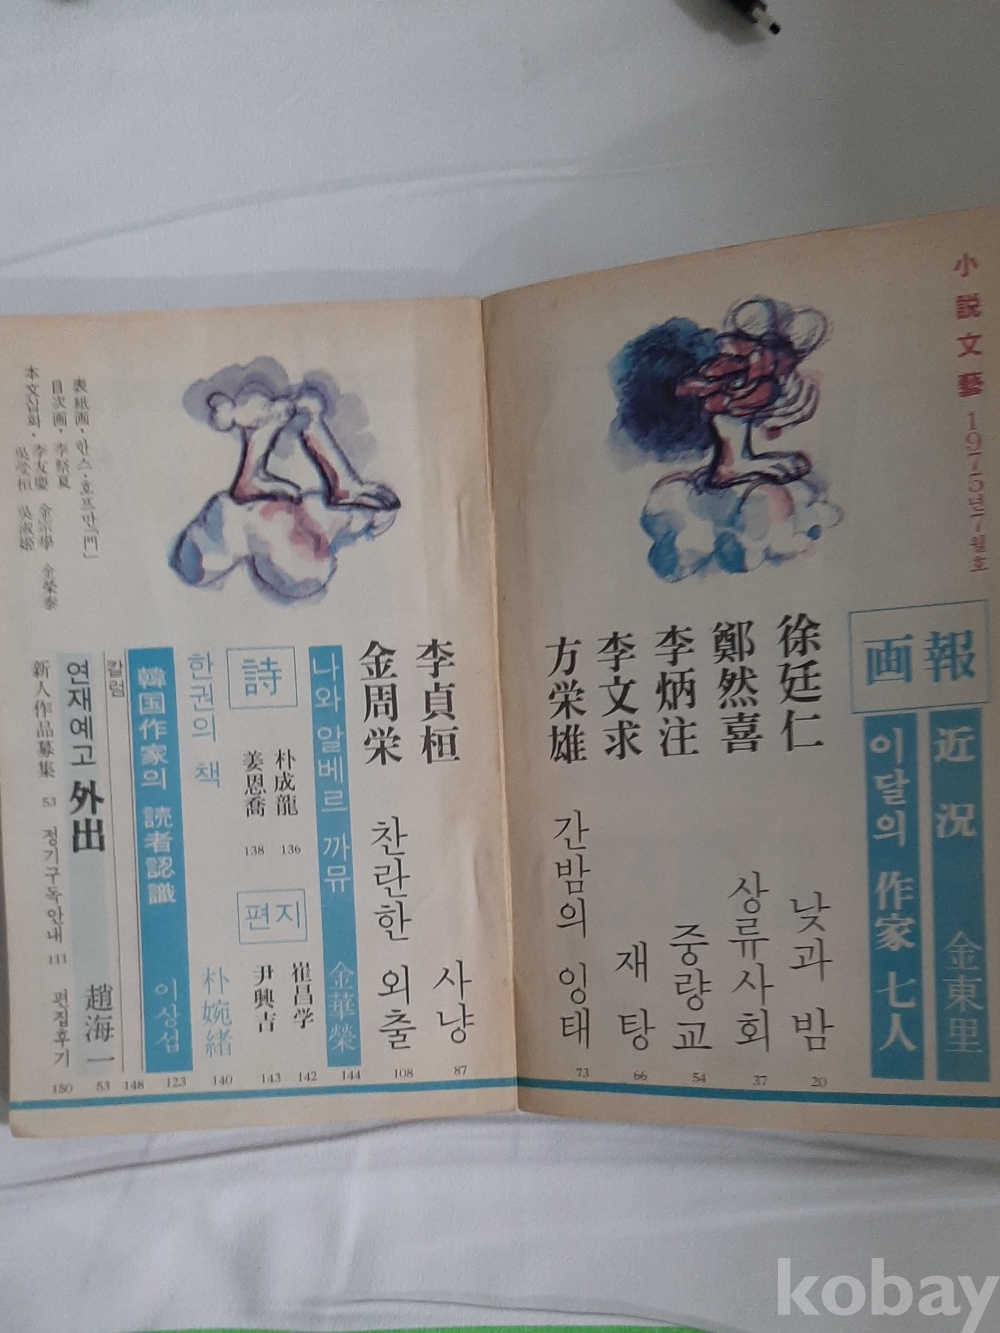 小説文藝 1975년7월호
画報
近況 金東里
이달의 作家 七人
徐廷仁 낮과 밤 20
鄭然喜 상류사회 37
李炳注 중량교 54
李文求 재탕 66
方栄雄 간밤의 잉태 73
李貞桓 사냥 87
金周栄 찬란한 외출 108
나와 알베르 까뮈 金華榮 144
詩
朴成龍 136
姜恩喬 138
편지
崔昌学 142
尹興吉 143
한권의 책 朴婉緒 140
韓国作家의 読者認識 이상섭 123
칼럼 148
연재예고 外出 趙海一 53
新人作品募集 53 정기구독안내 111 편집후기 150
表紙画·한스·호프만「門」
目次画·李祭夏
本文삽화·李友慶 金宗學 金榮泰
吳受桓 吳淑姬
kobay